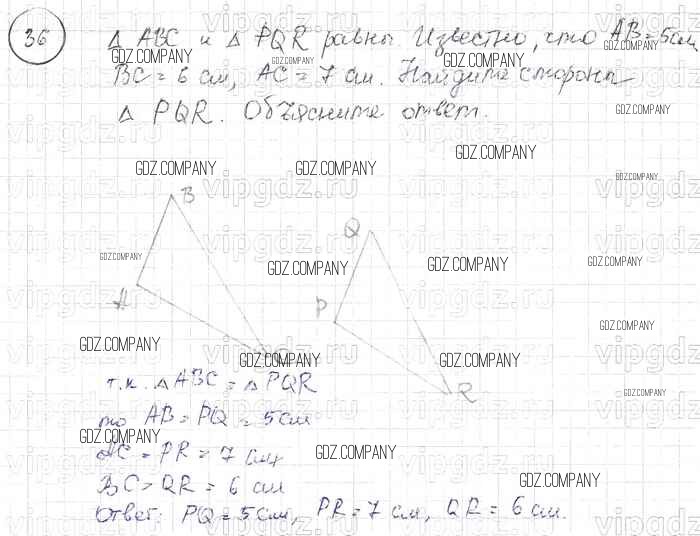 36
Δ ABC и Δ PQR равны. Известно, что AB = 5 см,
BC = 6 см, AC = 7 см. Найдите стороны
Δ PQR. Объясните ответ.
B
Q
A
P
R
т.к. Δ ABC = Δ PQR
то AB = PQ = 5 см
AC = PR = 7 см
BC = QR = 6 см
Ответ: PQ = 5 см, PR = 7 см, QR = 6 см.
GDZ.COMPANY
vipgdz.ru